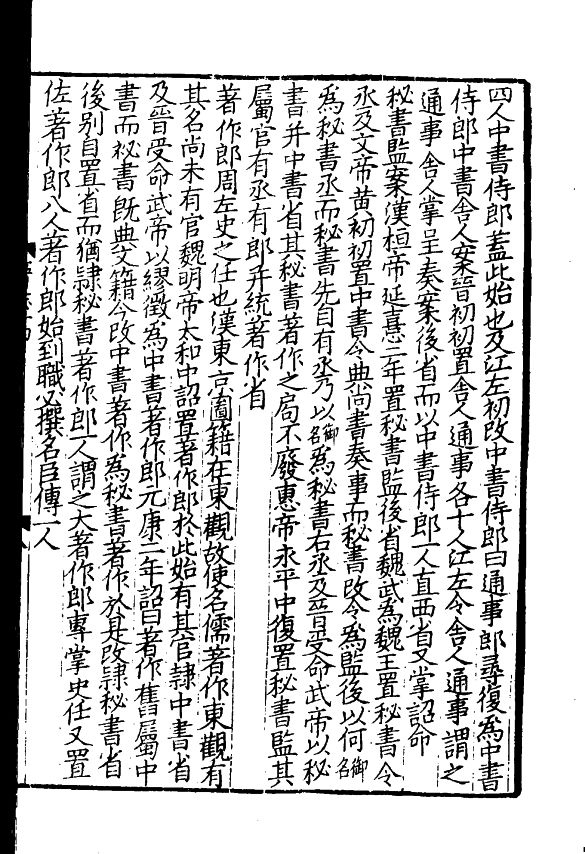 四人中書侍郎蓋此始也及江左初改中書侍郎曰通事郎尋復爲中書
侍郎中書舍人案晉初初置舍人通事各十人江左令舍人通事謂之
通事舍人掌呈奏案後省而以中書侍郎一人直西省又掌詔命
秘書監案漢桓帝延熹二年置秘書監後省魏武爲魏王置秘書令
丞及文帝黄初初置中書令典尚書奏事而秘書改令爲監後以何御名
爲秘書丞而秘書先自有丞乃以御名爲秘書右丞及晉受命武帝以秘
書并中書省其秘書著作之局不廢惠帝永平中復置秘書監其
屬官有丞有郎并統著作省
著作郎周左史之任也漢東京圖籍在東觀故使名儒著作東觀有
其名尚未有官魏明帝太和中詔置著作郎於此始有其官隷中書省
及晉受命武帝以繆徵爲中書著作郎元康二年詔曰著作舊屬中
書而祕書既典文籍今改中書著作爲秘書著作於是改隷秘書省
後别自置省而猶隷秘書著作郎一人謂之大著作郎專掌史任又置
佐著作郎八人著作郎始到職必撰名臣傳一人